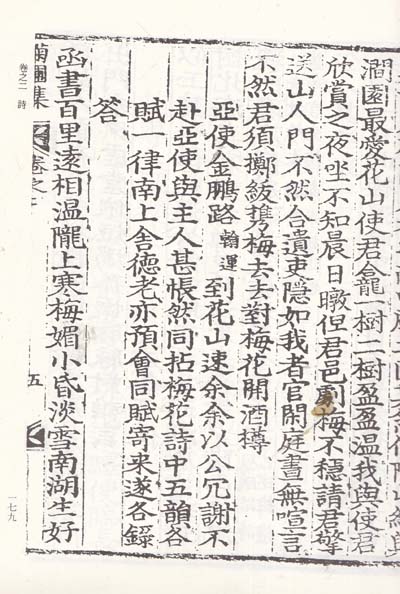 澗園最愛花山使君龕一樹二樹盈盈溫我與使君
欣賞之夜坐不知晨日暾但君邑劇梅不穩請君擎
送山人門不然合遺吏隱如我者官閑庭晝無喧言
不然君須擲紱携梅去去對梅花開酒樽
亞使金鵬路翰運到花山速余余以公冗謝不
赴亞使與主人甚悵然同拈梅花詩中五韻各
賦一律南上舍德老亦預會同賦寄来遂各録
答
函書百里遠相溫隴上寒梅媚小昏淡雲南湖生好
園集 卷之二 五
卷之二 詩
一七九